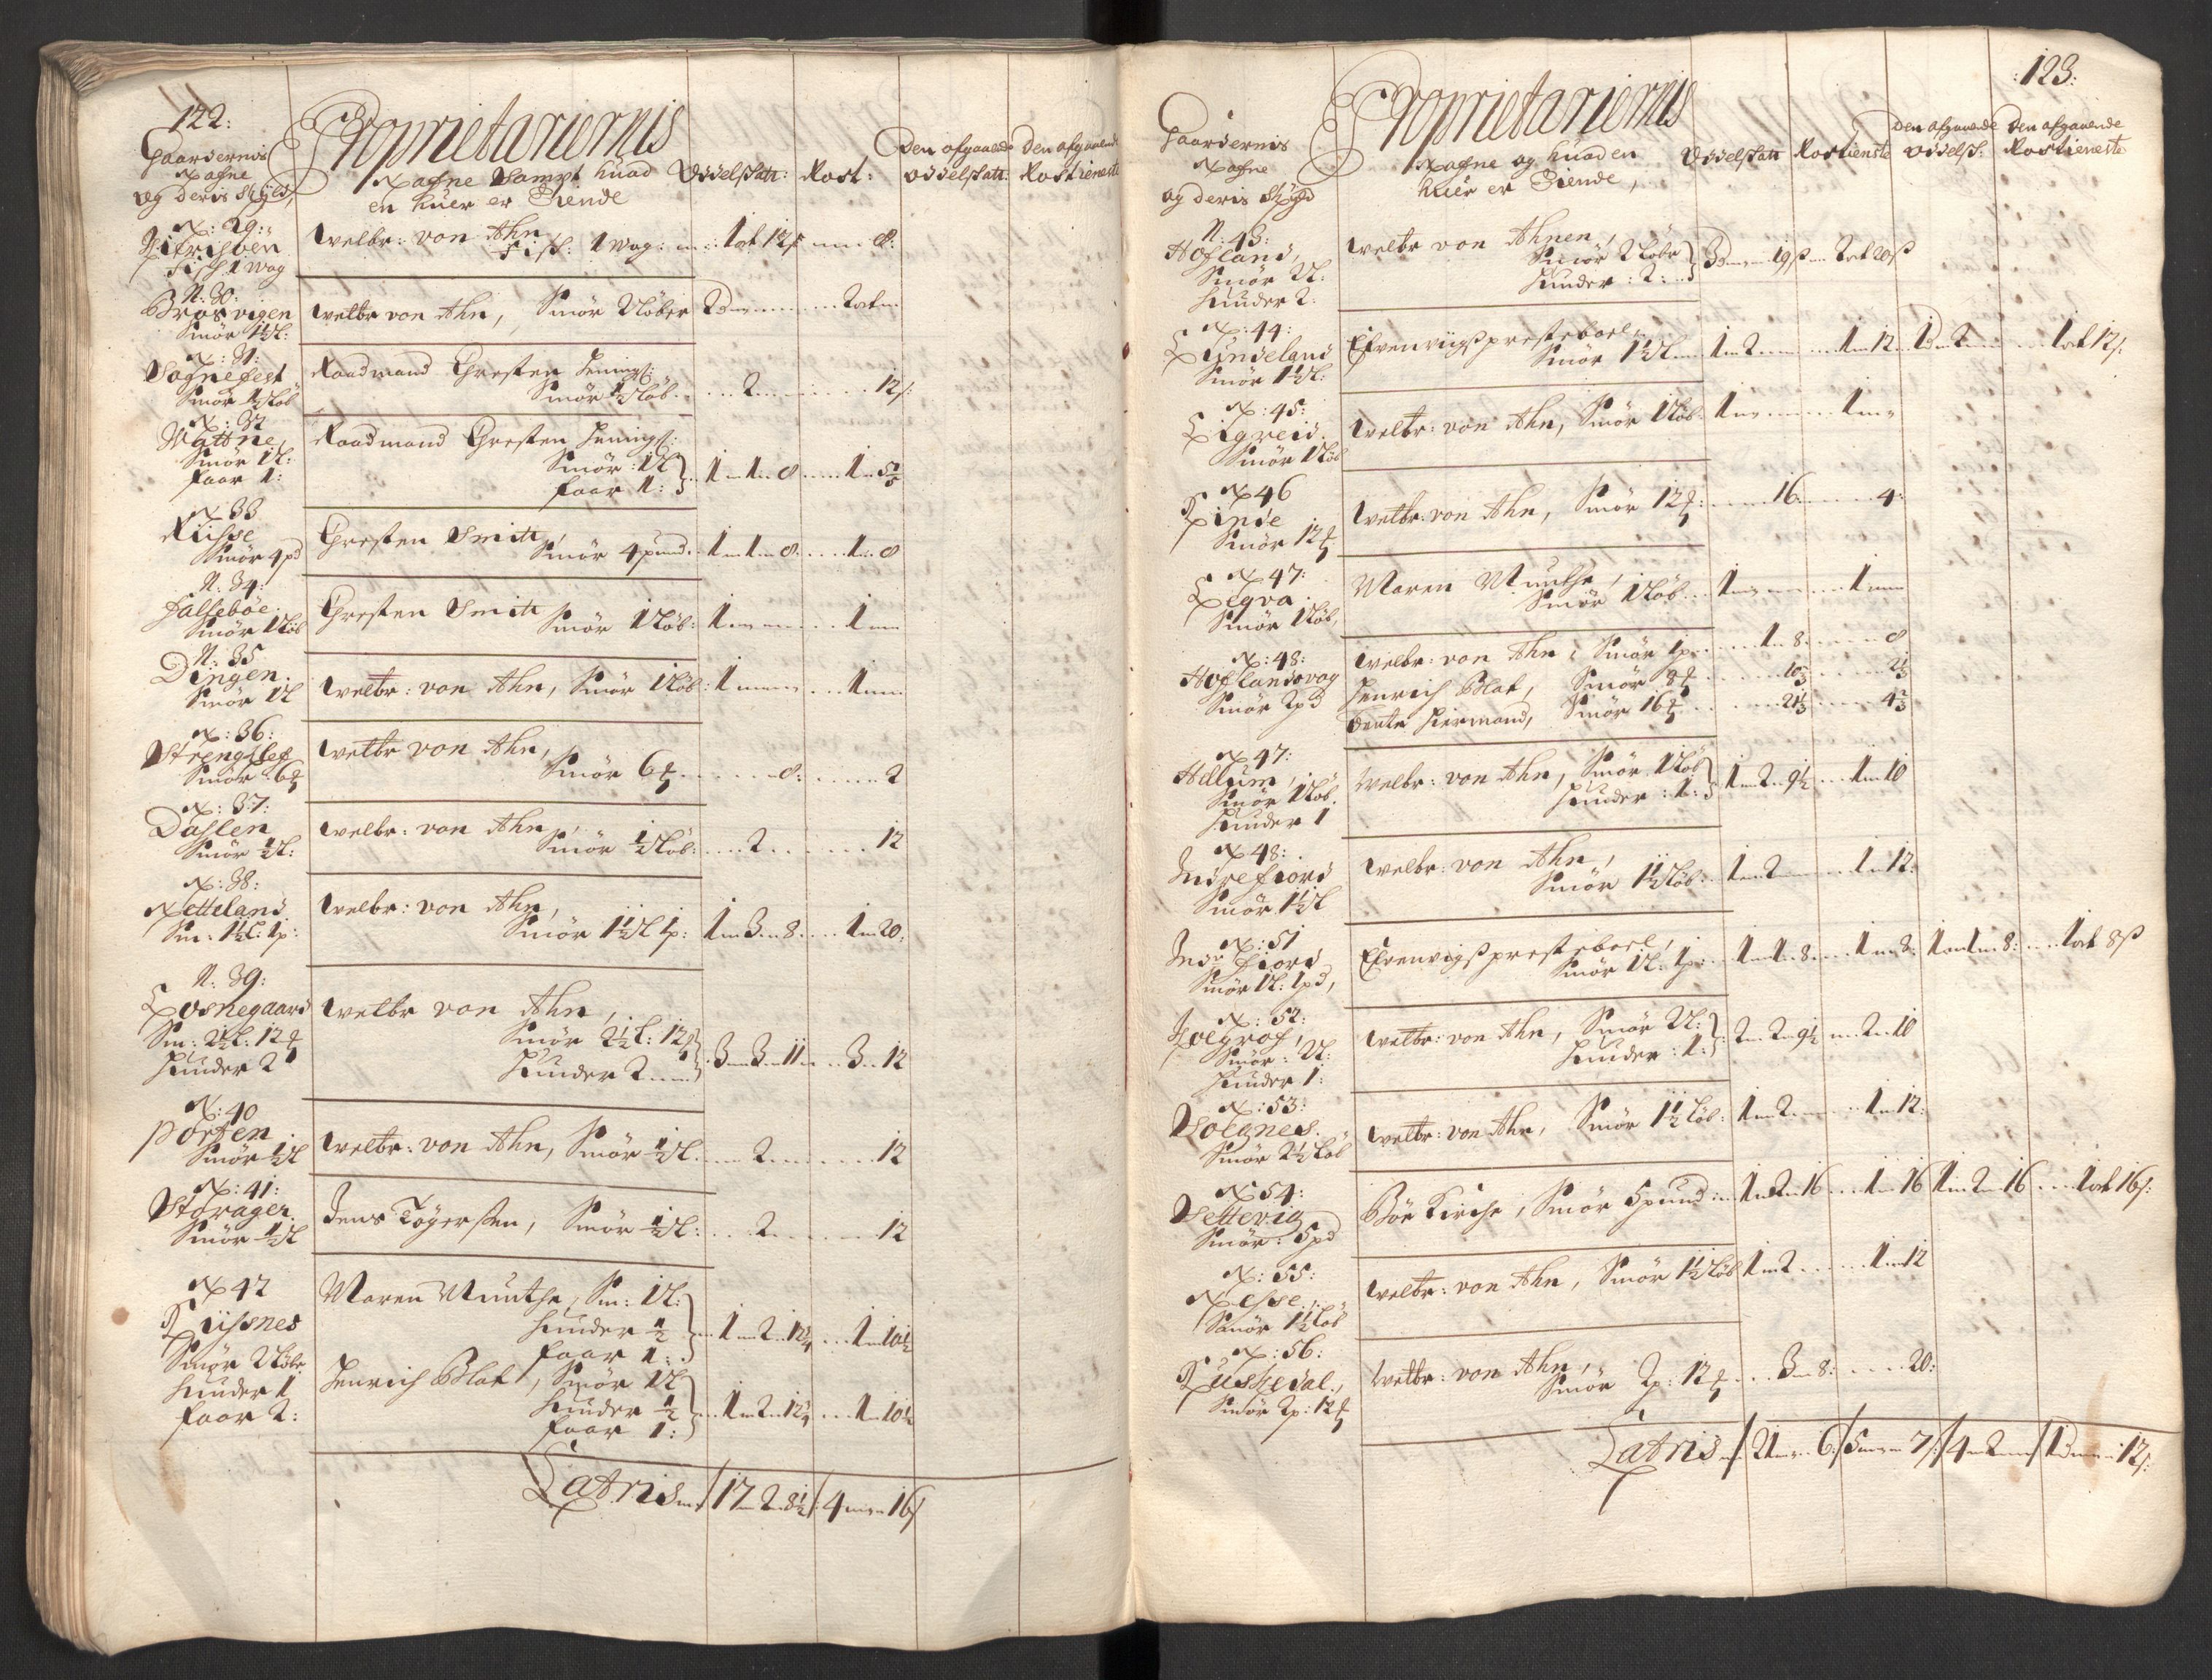 122:
Gaardernis
Nafne
og deris Skyld,
Proprietariernis
Nafne Sampt huad
en huer er Eiende
Odelskatt:
Rost:
Den afgaaende
Odelskatt:
Den afgaaende
Rostieneste
N: 29:
Fisch 1 Wog
Welbr: von Ahn
Fisk: 1 Wog: 1 ort 12 s 8:
N: 30:
Brosvigen
Smör 1½ L:
Welbr von Ahn, Smör 2 Löber 2 D 2 ort
N: 31:
Sognefest
Smör ½ Löb
Raadmand Chresten Jenings:
Smör ½ Löb 2 12 s:
N: 32
Nattne,
Smör 1 L:
faar 1:
Raadmand Chresten Jenings:
Smör: 1 L
faar 1: 1 1 8 1
N 33
Risse
Smör 4 pd
Chresten Smith,
Smör 4 pund. 1 1 8 1 8
N: 34:
Halseböe
Smör 1 Löb
Chresten Smith Smör 1 Löb: 1 1
N: 35
Dingen.
Smör 1 L
Welbr: von Ahn, Smör 1 Löb: 1 1
N: 36:
Smör 6
Welbr von Ahn,
Smör 6 8: 2
N: 37:
Dahlen
Smör ½ L:
Welbr: von Ahn,
Smör ½ Löb: 2 12
N: 38:
Netteland.
Sm: 1½ L: 1 p:
Welbr: von Ahn,
Smör 1½ L 1 p: 1 3 8 1 20:
N: 39:
Losnegaard
Sm: 2½ L: 12
Huuder 2
Welbr von Ahn,
Smör 2½ L: 12
Huuder 2 3 3 11 3 12
N: 40
Porten
Smör ½ L
Welbr: von Ahn, Smör ½ L 2 12
N: 41:
Storager.
Smör ½ L
Jens Tögersen, Smör ½ L: 2 12
N 42
Risnes
Smör 2 Löbr
Huuder 1
faar 2:
Maren Munthe, Sm: 1 L:
Huuder ½
faar 1: 1 2 12¼ 1 10½
Henrich Blat, Smör 1 L
Huuder ½
faar 1: 1 2 12¼ 1 10½
Latris 17 2 8½ 4 16 s
:123:
Gaardernis
Nafne
og deris Skyld
Proprietariernis
Nafne og huad en
huer er Eiende,
Odelskatt
Rostieneste
Den afgaaende
Odelsk:
Den afgaaende
Rostieneste
N: 43:
Hofland,
Smör 2 L:
Huuder 2:
Welbr von Ahnen,
Smör 2 Löbr
Huuder: 2: 3 D 19 s 2 ort 20 s
N: 44:
Lundeland
Smör 1½ L:
Efvenvigs presteboel,
Smör 1½ L 1 2 1 12 1 D 2 1 ort 12 s:
N: 45:
Ligreid.
Smör 1 Löb
Welbr: von Ahn, Smör 1 Löb 1 1
N 46
Rinde
Smör 12
Welbr: von Ahn, Smör 12 16 4:
N 47:
Legva.
Smör 1 Löb,
Maren Munthe,
Smör 1 Löb 1 1
N: 48:
Hoflandsvog
Smör 2 pd
Welbr: von Ahn: Smör 1 p 1 8 8
Henrich Blat, Smör 8 10⅔ 2⅔
Bente Hiermand, Smör 16 21⅓ 4⅔
N 47:
Hellum,
Smör 1 Löb.
Huuder 1
Welbr: von Ahn, Smör 1 Löb
Huuder: 1: 1 2 9½ 1 10
N 48:
Indrefiord
Smör 1½ L
Welbr: von Ahn,
Smör 1½ Löb: 1 2 1 12:
N: 51
Indr fiord
Smör 1 L: 1 pd,
Efvenvigs presteboel,
Smör 1 L: 1 p: 1 1 8 1 8: 1 1 8: 1 ort 8 s
N: 52:
Smör: 2 L:
Huuder 1:
Welbr: von Ahn, Smör 2 L:
Huuder: 1: 2 2 9½ 2 10
N: 53:
Solgnes.
Smör 2½ Löb
Welbr: von Ahn, Smör 1½ Löb: 1 2 1 12:
N 54:
Settevig
Smör: 5 pd
Böe Kirche, Smör 5 pund: 1 2 16 1 16 1 2 16 1 ort 16 s:
N: 55:
Nesse,
Smör 1½ Löb
Welbr: von Ahn, Smör 1½ Löb 1 2 1 12
N: 56:
Rusledal,
Smör 2 p: 12
Welbr: von Ahn,
Smör 2 p: 12 3 8: 20:
Latris 21 6: 5 7 s: 4 2 1 D 12 s: